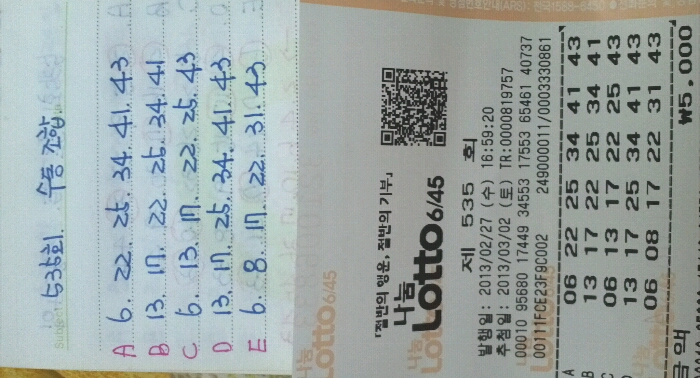 535회. 수동 조합.
A 6. 22. 25. 34. 41. 43
B 13. 17. 22. 25. 34. 41
C 6. 13. 17. 22. 25. 43
D 13. 17. 25. 34. 41. 43
E 6. 8. 17. 22. 31. 43.
「절반의 행운, 절반의 기부」
나눔
Lotto 6/45
제 535 회
발행일: 2013/02/27 (수) 16:59:20
추첨일: 2013/03/02 (토) TR:0000819757
L00010 95680 17449 34553 17553 65461 40737
00111FCE23F9C002 249000011/0003330861
A 06 22 25 34 41 43
B 13 17 22 25 34 41
C 06 13 17 22 25 43
D 13 17 25 34 41 43
E 06 08 17 22 31 43
금액 ₩5.000